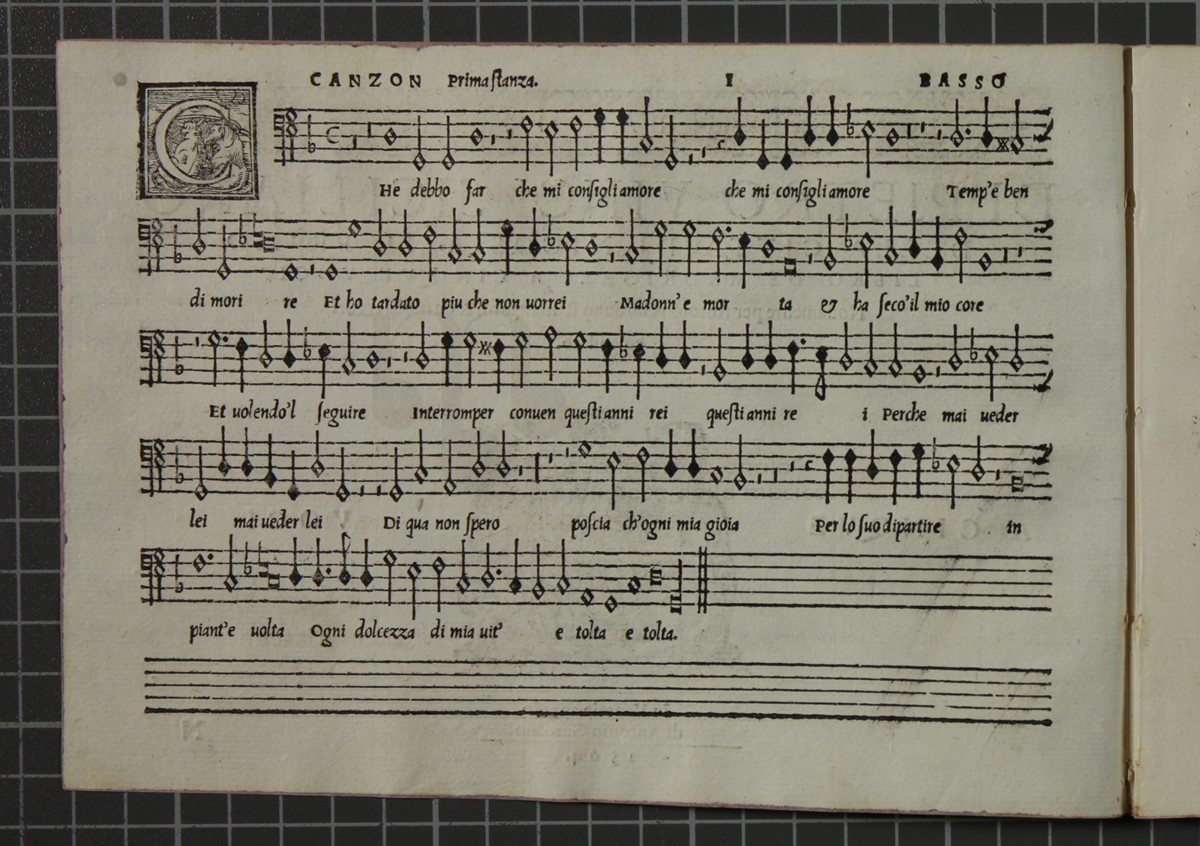 CANZON Prima stanza. I BASSO
CHe debbo far che mi consigli amore che mi consigli amore Temp'e ben
di mori re Et ho tardato piu che non uorrei Madonn'e mor ta & ha seco'il mio core
Et uolendo'l seguire Interromper conuen questi anni rei questi anni re i Perche mai ueder
lei mai ueder lei Di qua non spero poscia ch'ogni mia gioia Per lo suo dipartire in
piant'e uolta Ogni dolcezza di mia uit' e tolta e tolta.